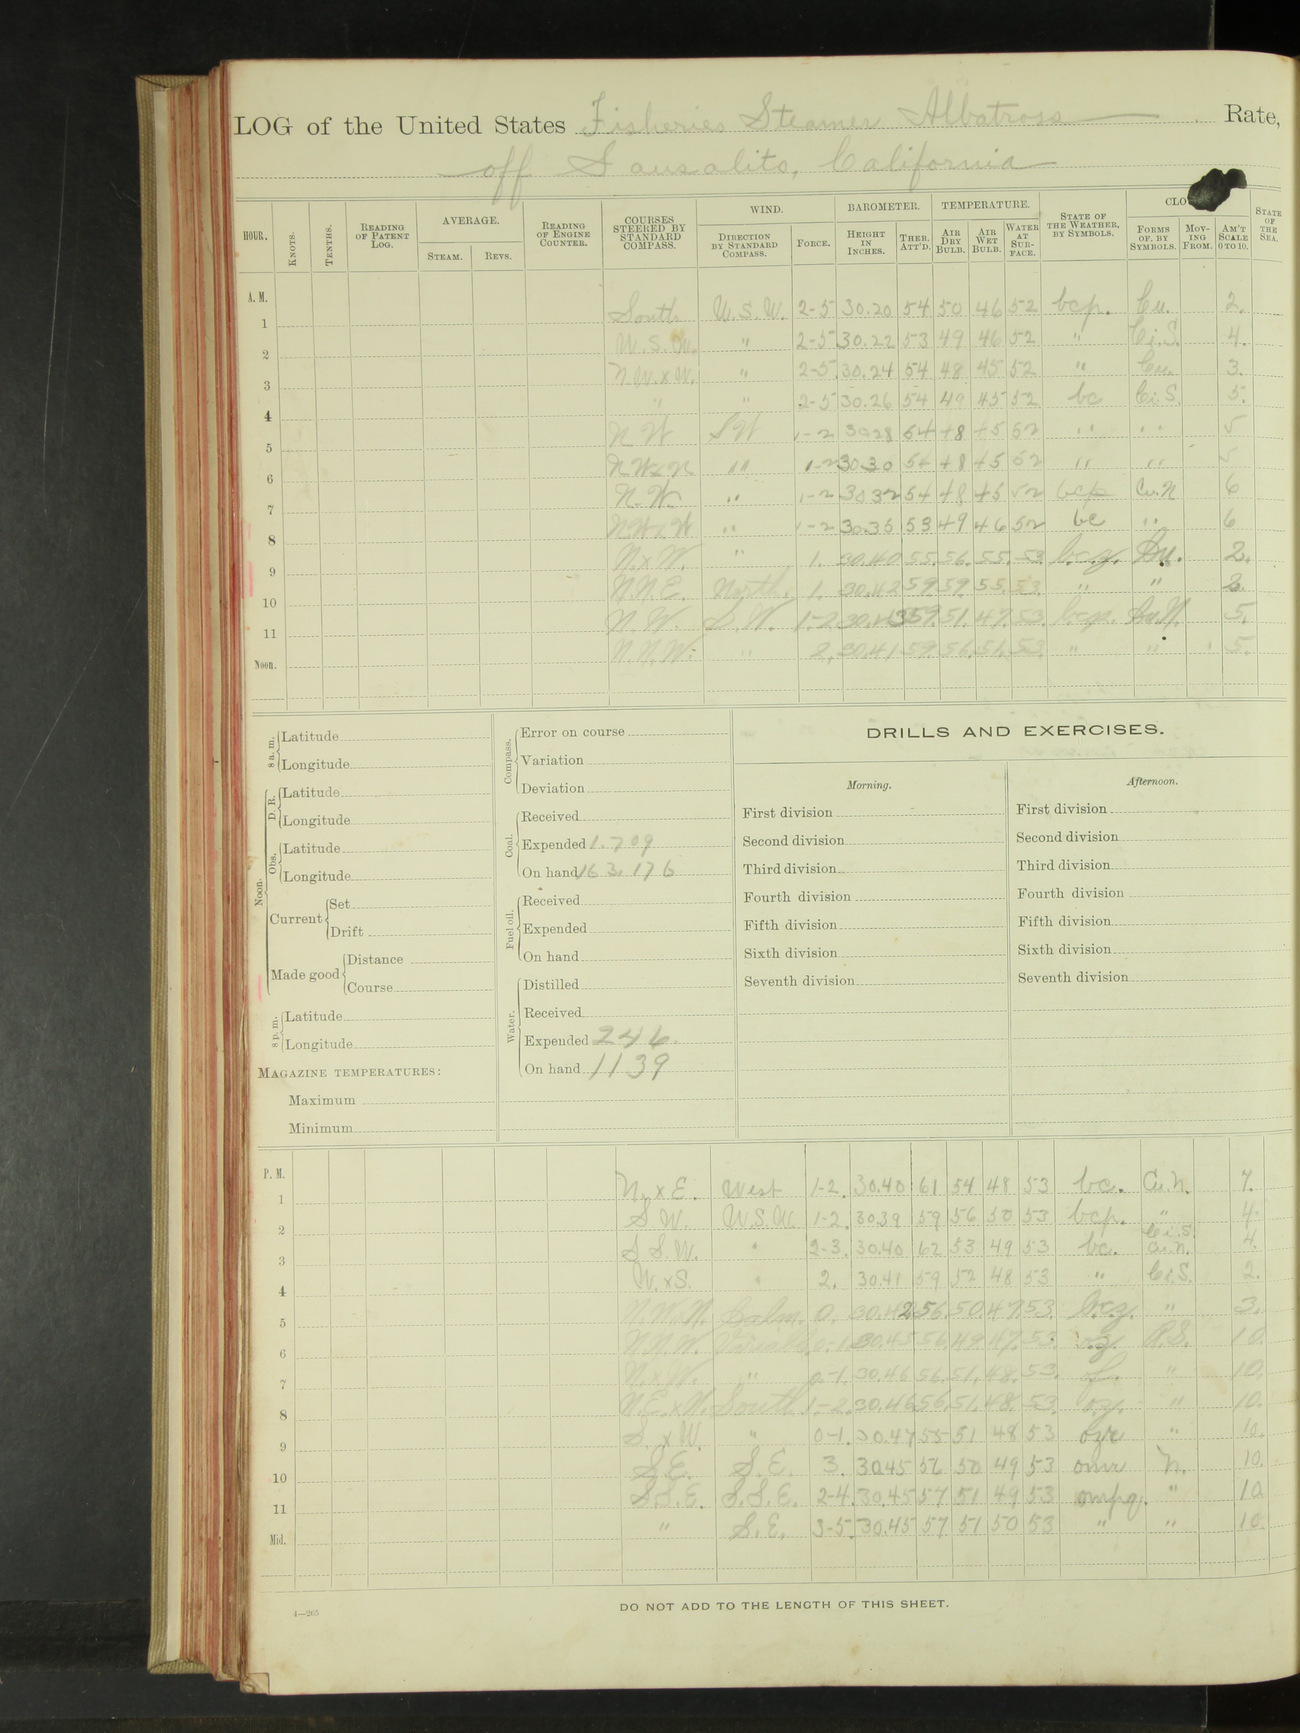 LOG of the United States Fisheries Steamer Albatross Rate,
off Sausalito, California
HOUR. KNOTS. TENTHS. READING OF PATENT LOG. AVERAGE. STEAM. REVS. READING OF ENGINE COUNTER. COURSES STEERED BY STANDARD COMPASS. WIND. DIRECTION BY STANDARD COMPASS. FORCE. BAROMETER. HEIGHT IN INCHES. THER. ATT'D. TEMPERATURE. AIR DRY BULB. AIR WET BULB. WATER AT SURFACE. STATE OF THE WEATHER, BY SYMBOLS. CLO FORMS OF, BY SYMBOLS. MOVING FROM. AM'T SCALE 0 TO 10. STATE OF THE SEA.
A. M.
1 South W.S.W. 2-5 30.20 54 50 46 52 bcp. Cu. 2.
2 W.S.W. " 2-5 30.22 53 49 46 52 " Ci.S. 4.
3 N.W.xW. " 2-5 30.24 54 48 45 52 " Cu. 3.
4 " " 2-5 30.26 54 49 45 52 bc Ci.S. 5.
5 N W S W 1-2 30 28 54 48 45 52 " " 5
6 N W x N " 1-2 30 30 54 48 45 52 " " 5
7 N.W. " 1-2 30 32 54 48 45 52 bcp Cu.N 6
8 N W x W " 1-2 30.35 53 49 46 52 bc " 6
9 N.x W. " 1. 30.40 55. 56. 55. 53 b.c.z. Cu. 2.
10 N.N.E. North. 1. 30.42 59 59. 55. 53 " " 2.
11 N.W. S.W. 1-2 30.43 59. 51. 47. 53. bcp. Cu.N. 5.
Noon. N.N.W. " 2. 30.41 59. 56. 51. 53. " " 5.
8 a.m. Latitude
Longitude
Noon. D. R. Latitude
Longitude
Obs. Latitude
Longitude
Current Set
Drift
Made good Distance
Course
8 p.m. Latitude
Longitude
MAGAZINE TEMPERATURES:
Maximum
Minimum
Compass. Error on course
Variation
Deviation
Coal. Received
Expended 1.709
On hand 163.176
Fuel oil. Received
Expended
On hand
Water. Distilled
Received
Expended 246.
On hand 1139
DRILLS AND EXERCISES.
Morning.
First division
Second division
Third division
Fourth division
Fifth division
Sixth division
Seventh division
Afternoon.
First division
Second division
Third division
Fourth division
Fifth division
Sixth division
Seventh division
P. M.
1 N. x E. West 1-2. 30.40 61 54 48 53 bc. Cu.N. 7.
2 S W. W.S.W. 1-2. 30.39 59 56 50 53 bcp. " 4.
3 S S.W. " 2-3. 30.40 62 53 49 53 bc. Ci.S. Cu.N. 4.
4 W.xS. " 2. 30.41 59 52 48 53 " Ci.S. 2.
5 Calm. 0. 30.42 56. 50. 47. 53. b.c.z. " 3.
6 N.N.W. Variable 0-1. 30.45 56. 49. 47. 53. 10.
7 N.x W. " 0-1. 30.46 56. 51. 48. 53. " 10.
8 N.E.x N. South 1-2. 30.46 56. 51. 48. 53. " 10.
9 S. x W. " 0-1. 30.47 55 51 48 53 ozr " 10.
10 S.E. S.E. 3. 30.45 56 50 49 53 omr N. 10.
11 S.S.E. S.S.E. 2-4. 30.45 57 51 49 53 ompq. " 10
Mid. " S.E. 3-5. 30.45 57 51 50 53 " " 10.
4—265
DO NOT ADD TO THE LENGTH OF THIS SHEET.